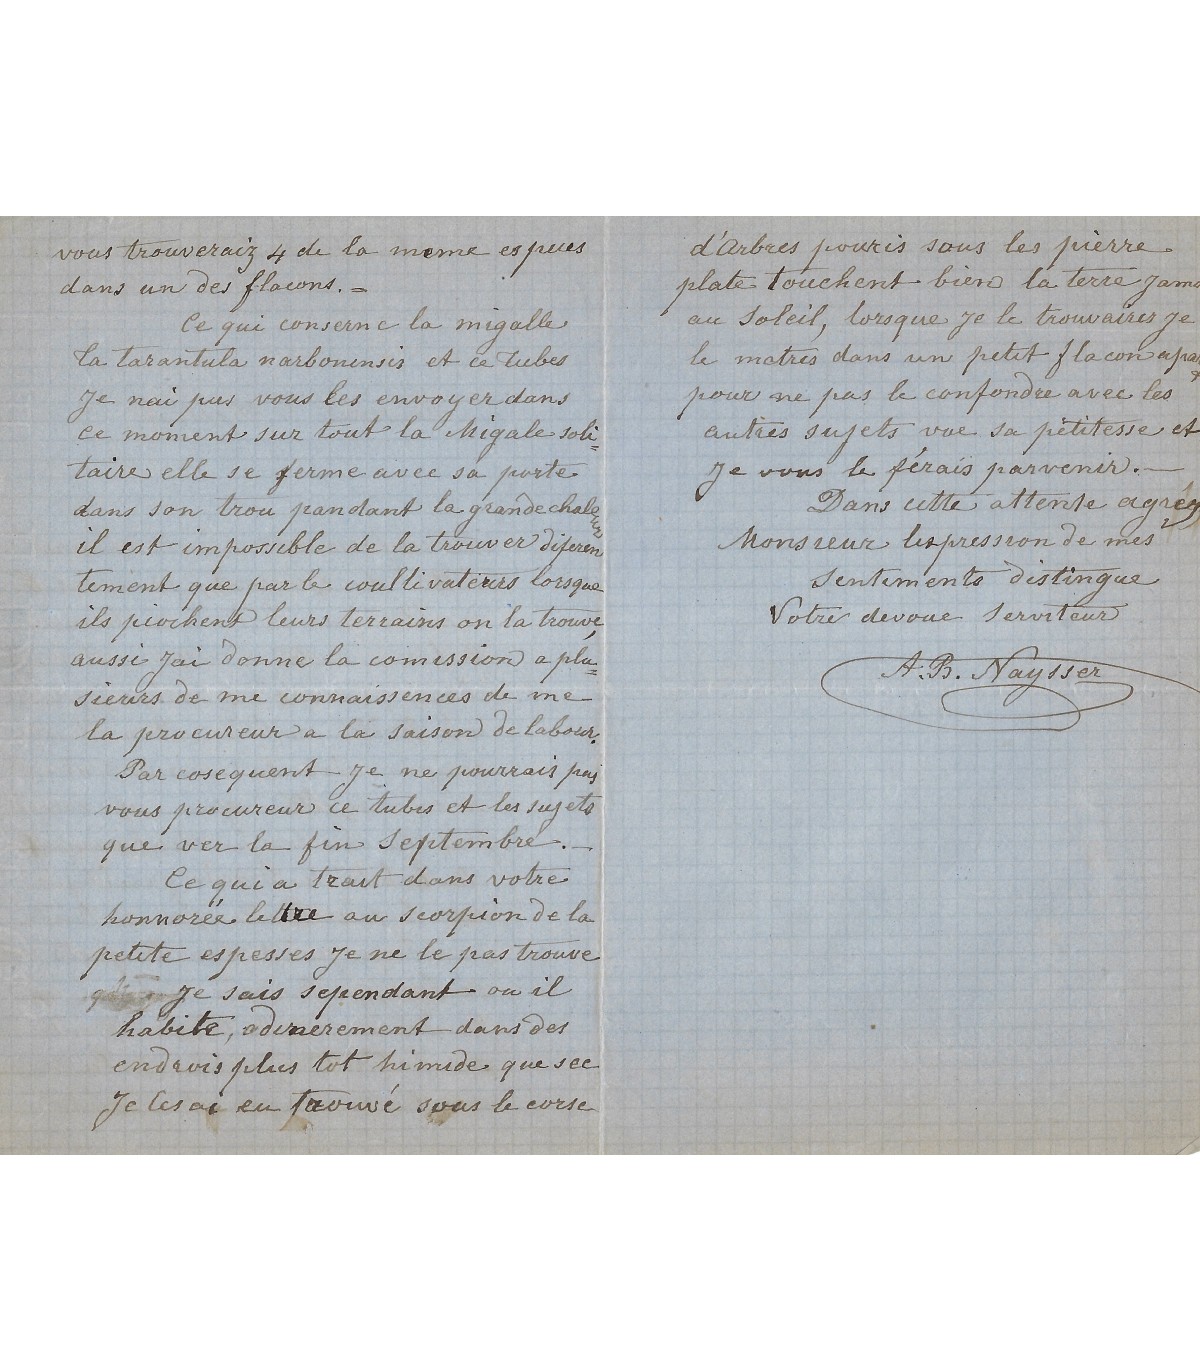 vous trouveraiz 4 de la meme espues
dans un des flacons. =
Ce qui conserne la migalle
la tarantula narbonensis et ce tubes
Je nai pus vous les envoyer dans
ce moment sur tout la Migale soli=
taire elle se ferme avec sa porte
dans son trou pandant la grande chaleur
il est impossible de la trouver diferen
tement que par le coultivateurs lorsque
ils piochent leurs terrains on la trouve,
aussi Jai donne la comission a plu=
sieurs de me connaissences de me
la procureur a la saison de labour.
Par cosequent Je ne pourrais pas
vous procureur ce tubes et les sujets
que ver la fin Septembre. —
Ce qui a trait dans votre
honnorée lettre au scorpion de la
petite espesses Je ne le pas trouve
Je sais sependant ou il
habite, adinerement dans des
endrois plus tot himide que sec
Je les ai eu trouvé sous le corse
d'Arbres pouris sous les pierre
plate touchent bien la terre Jama
au Soleil, lorsque Je le trouvaires Je
le matres dans un petit flacon apar
pour ne pas le confondre avec les
autres sujets vue sa petitesse et
Je vous le férais parvenir. —
Dans cette attente agréez
Monsieur lexpression de mes
Sentiments distingue
Votre devoue Serviteur
A. B. Naysser